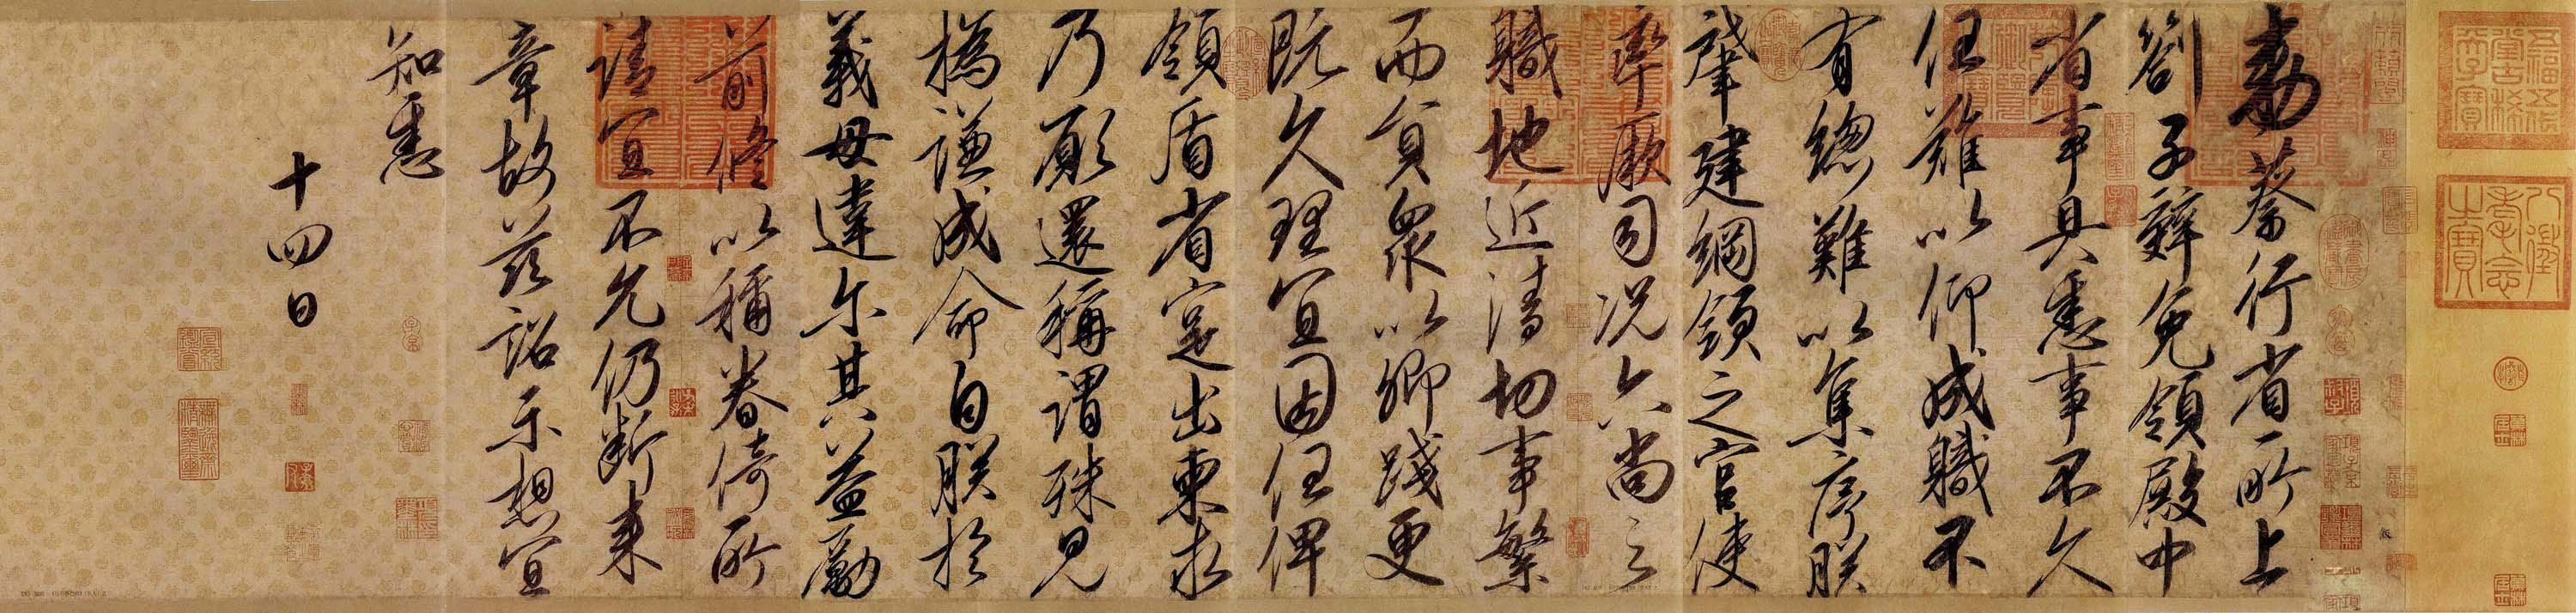 敕蔡行省所上
劄子辭免領殿中
省事具悉事不久
任難以仰成職不
有總難以集序朕
肇建綱領之官使
率厥司況六尚之
職地近清切事繁
而員衆以卿踐更
既久理宜因任俾
領盾省寔出柬求
乃願還稱謂殊見
撝謙成命自朕於
義毋違爾其益勵
前修以稱眷倚所
請宜不允仍斷來
章故茲詔示想宜
知悉
十四日